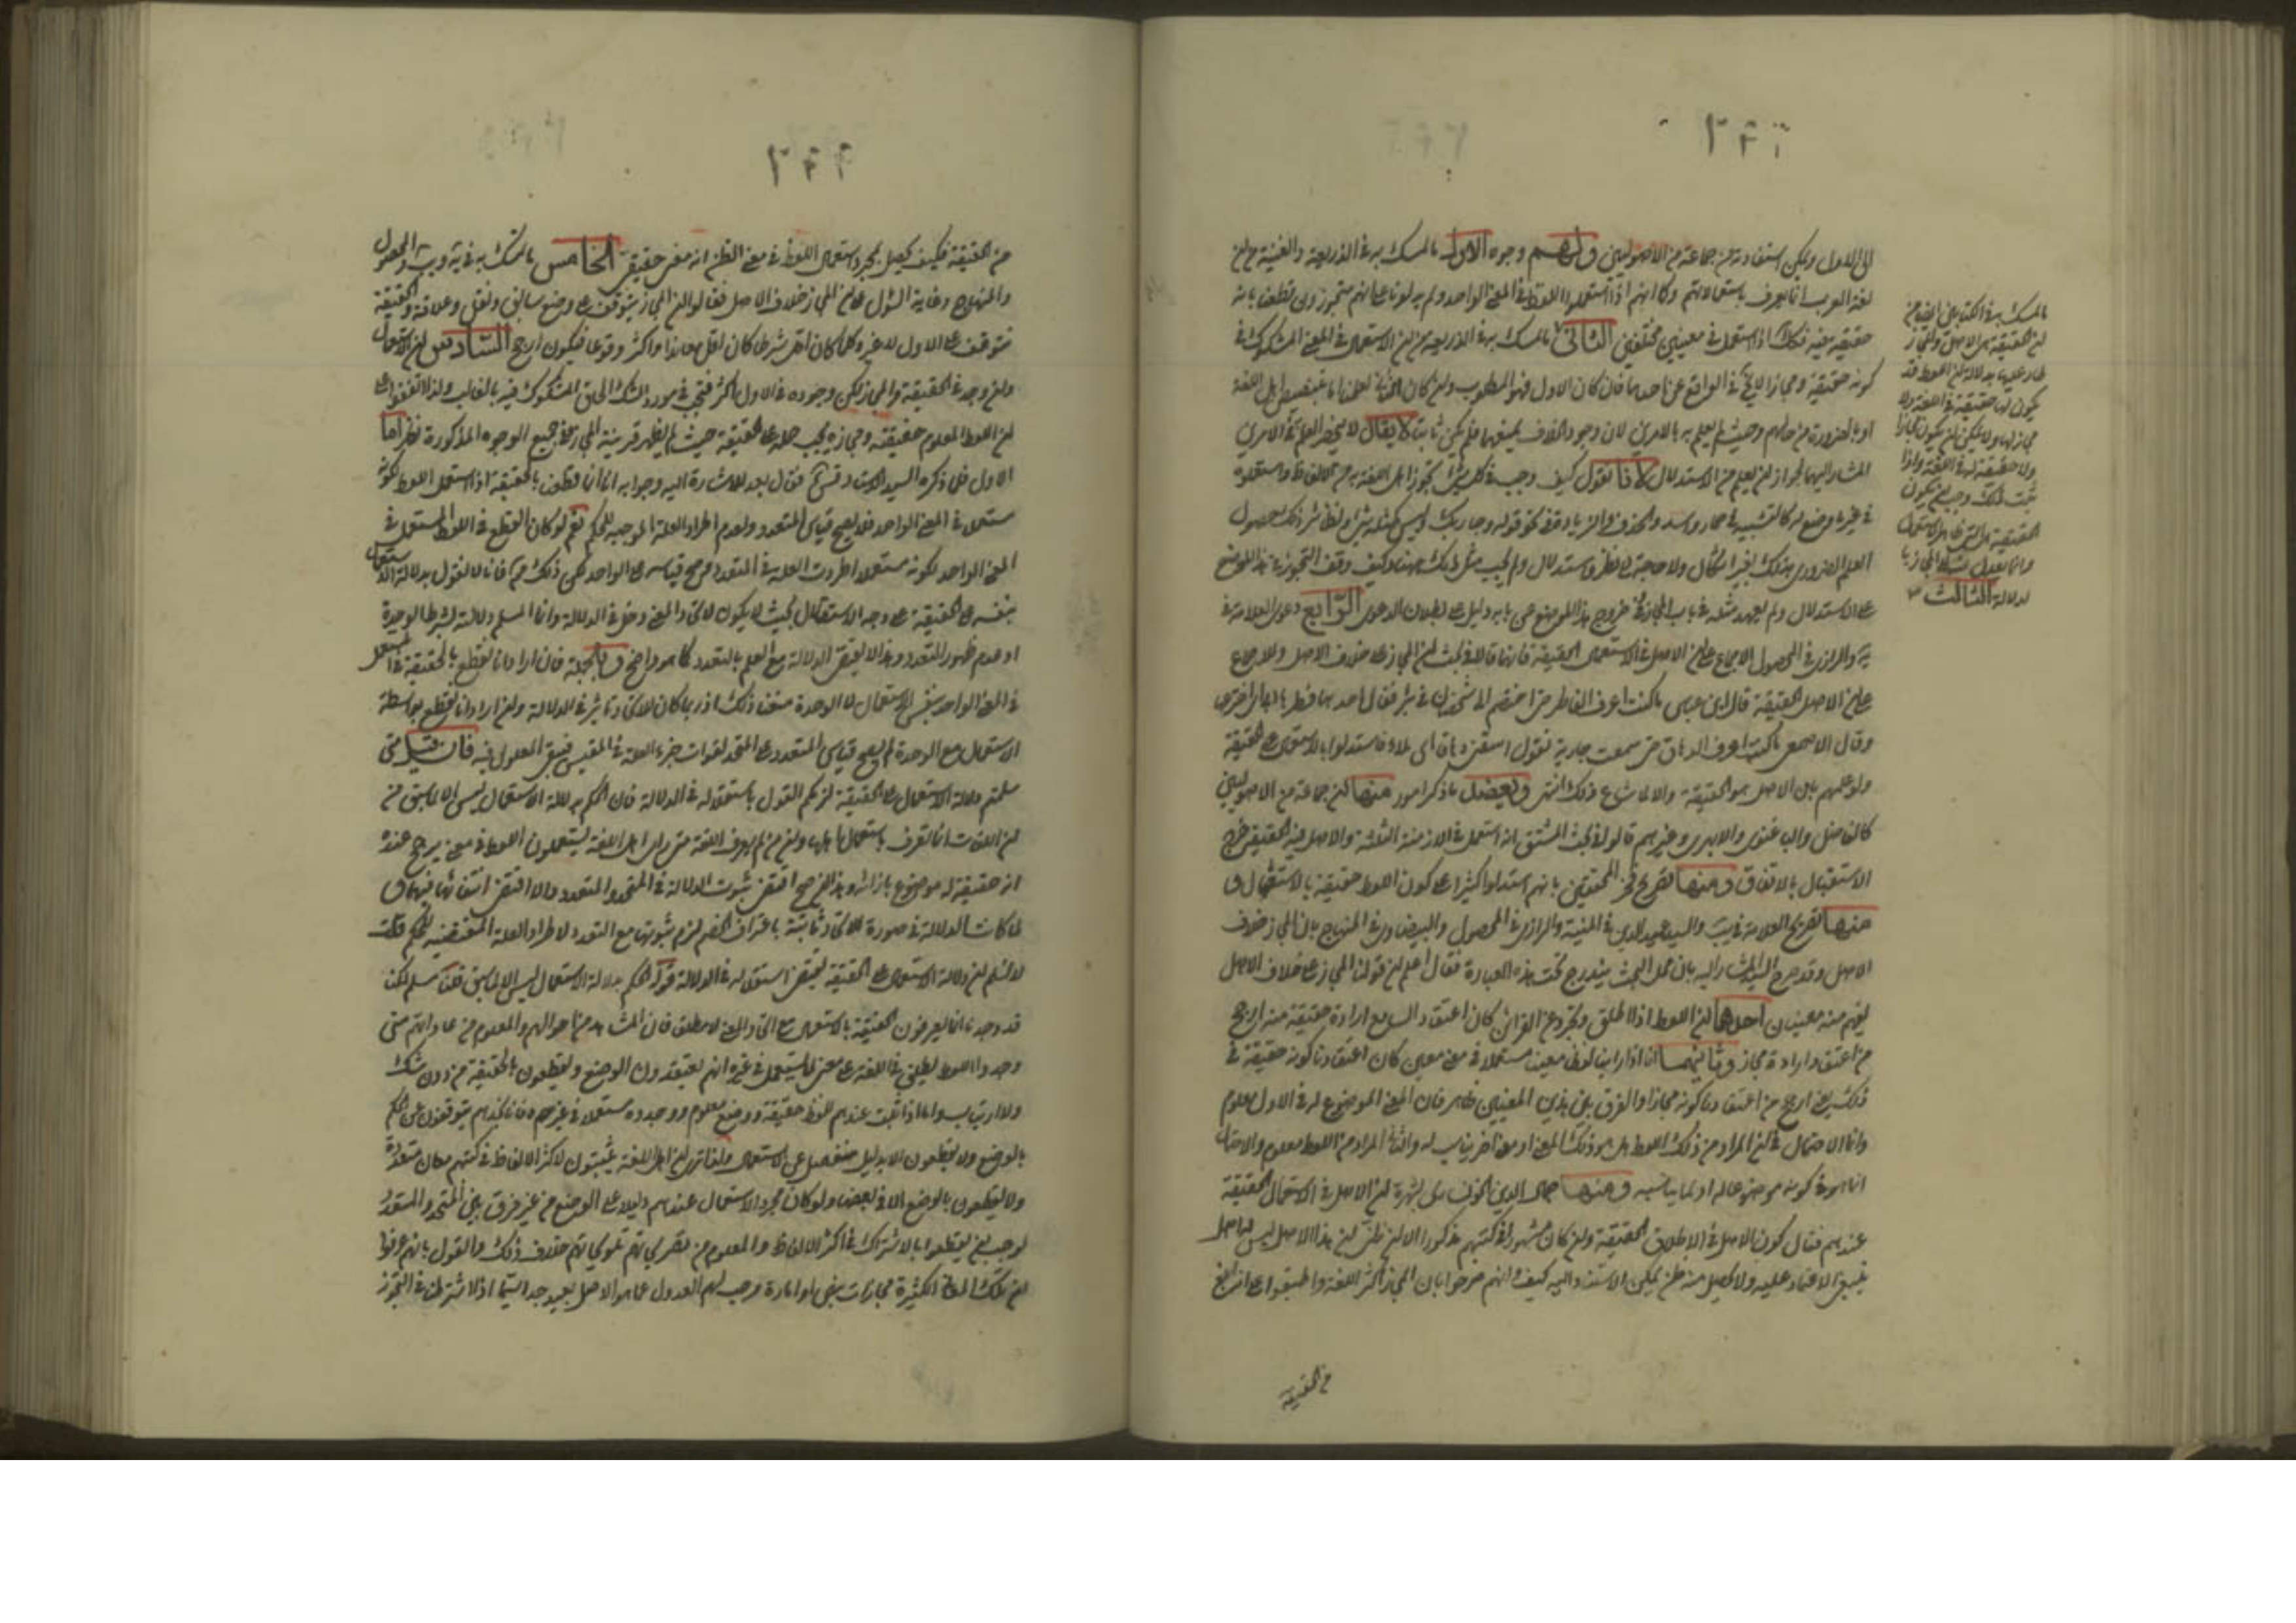 الى الاول ويمكن استفادته من جماعة من الاصوليين ولهم وجوه الاول ما تمسك به في الذريعة والغنية من ان
لغة العرب انما يعرف باستعمالاتهم وكما انهم اذا استعملوا اللفظ في المعنى الواحد ولم يدلونا على انهم متجوزون قطعنا بانه
حقيقة فيه فكذلك اذا استعمل في معنيين مختلفين الثاني ما تمسك به في الذريعة من ان الاستعمال في المعنى المشكوك في
كونه حقيقة ومجازا لا يخ في الواقع عن احدهما فان كان الاول فهو المطلوب وان كان الثاني لعلمنا بتنصيص اهل اللغة
او بالضرورة من حالهم وحيث لم يعلم به بالامرين لان وجود الخلاف يمنعهما فلم يكن ثابتا لا يقال لا ينحصر العلم في الامرين
المشار اليهما لجواز ان يعلم من الاستدلال لانا نقول كيف وجب في كل شيء تجوز اهل اللغة به من الالفاظ واستعملوه
في غير ما وضع له كالتشبيه في حمار واسد والحذف والزيادة في نحو قوله وجاء ربك وليس كمثله شيء ونظائر ذلك حصول
العلم الضروري بذلك بغير اشكال ولا حاجة الى نظر واستدلال ولم يجب مثل ذلك هنا وكيف وقف التجوز في هذا الموضع
على الاستدلال ولم يعهد مثله في باب المجاز في خروج هذا الموضع عن بابه دليل على بطلان الدعوى الرابع دعوى العلامة في
يه والرازي في المحصول الاجماع على ان الاصل في الاستعمال الحقيقة فانهما قالا في بحث ان المجاز على خلاف الاصل وللاجماع
على ان الاصل الحقيقة قال ابن عباس ما كنت اعرف الفاطر حتى اختصم الى شخصان في بئر فقال احدهما فطرها ابي اي اخترعها
وقال الاصمعي ما كنت اعرف الدهاق حتى سمعت جارية تقول اسقني دهاقا اي ملاءا فاستدلوا بالاستعمال على الحقيقة
ولولا علمهم بان الاصل هو الحقيقة والا لما شاع ذلك انتهى ويعضد ما ذكر امور منها ان جماعة من الاصوليين
كالفاضل والباغنوي والابهري وغيرهم قالوا في بحث المشتق انه استعمل في الازمنة الثلثة والاصل فيه الحقيقة خرج
الاستقبال بالاتفاق ومنها تصريح فخر المحققين بانهم استدلوا كثيرا على كون اللفظ حقيقة بالاستعمال و
منها تصريح العلامة في يب والسيد عميد الدين في المنية والرازي في المحصول والبيضاوي في المنهاج بان المجاز خلاف
الاصل وقد صرح السيد المشار اليه بان محل البحث يندرج تحت هذه العبارة فقال اعلم ان قولنا المجاز على خلاف الاصل
يفهم منه معنيان احدهما ان اللفظ اذا اطلق وتجرد عن القرائن كان اعتقاد السامع ارادة حقيقة منه ارجح
من اعتقاد ارادة مجازه وثانيهما انا اذا راينا لفظا معينا مستعملا في معنى معين كان اعتقادنا كونه حقيقة في
ذلك المعنى ارجح من اعتقادنا كونه مجازا والفرق بين هذين المعنيين ظاهر فان المعنى الموضوع له في الاول معلوم
وانما الاحتمال في ان المراد من ذلك اللفظ هل هو ذلك المعنى او معنى اخر يناسبه والثاني المراد من اللفظ معلوم والاحتمال
انما هو في كونه موضوعا له او لما يناسبه ومنها جمال الدين الخونساري لشهرة ان الاصل في الاستعمال الحقيقة
عندهم فقال كون الاصل في الاطلاق الحقيقة وان كان مشهورا في كتبهم مذكورا الا ان ظني ان هذا الاصل ليس له اصل
ينبغي الاعتماد عليه ولا يحصل منه ظن يمكن الاستناد اليه كيف وانهم صرحوا بان المجاز اكثر اللغة واطبقوا على انه ابلغ
من الحقيقة
ما تمسك به في الكتابين ايضا من
ان الحقيقة هي الاصل والمجاز
طار عليها بدلالة ان اللفظ قد
يكون لها حقيقة في اللغة ولا
مجاز لها ولا يمكن ان يكون مجازا
ولا حقيقة له في اللغة واذا
ثبت ذلك وجب ان يكون
الحقيقة هي التي ظاهر الاستعمال
وانما يعدل الى المجاز بالدلالة
الثالث
من الحقيقة فكيف يحصل بمجرد استعمال اللفظ في معنى الظن انه معنى حقيقي الخامس ما تمسك به في يه ويب والمحصول
والمنهاج وغاية السؤل على ان المجاز خلاف الاصل فقالوا ان المجاز يتوقف على وضع سابق ونقل وعلاقة والحقيقة
تتوقف على الاول لا غير وكلما كان اقل شرطا كان اقل معاندا واكثر وقوعا فيكون ارجح السادس ان الاستعمال
وان وجد في الحقيقة والمجاز لكن وجوده في الاول اكثر فيجب في مورد الشك الحاق المشكوك فيه بالغالب ولذا اتفقوا على
ان اللفظ المعلوم حقيقته ومجازه يجب حمله على الحقيقة حيث لم يظهر قرينة المجاز وفي جميع الوجوه المذكورة نظر اما
الاول فلما ذكره السيد الاستاد قدس سره فقال بعد الاشارة اليه وجوابه انا انما قطعنا بالحقيقة اذا استعمل اللفظ لكونه
مستعملا في المعنى الواحد فلا يصح قياس المتعدد ولعدم اطراد العلة الموجبة للحكم نعم لو كان القطع في اللفظ المستعمل في
المعنى الواحد لكونه مستعملا اطردت العلة في المتعدد وصح قياسه على الواحد لكن ذلك مم فانا لا نقول بدلالة الاستعمال
بنفسه على الحقيقة على وجه الاستقلال بحيث لا يكون لاتحاد المعنى دخل في الدلالة وانما المسلم دلالته بشرط الوحدة
او عدم ظهور التعدد وهذا لا يقتضي الدلالة مع العلم بالتعدد كما هو واضح وبالجملة فان اراد انا نقطع بالحقيقة في المستعمل
في المعنى الواحد بنفس الاستعمال لا الوحدة منعنا ذلك اذ ربما كان للاتحاد تاثير في الدلالة وان اراد انا نقطع بواسطة
الاستعمال مع الوحدة لم يصح قياس المتعدد على المتحد لفوات جزء العلة في المقيس فينتفي المعلول فيه فان قيل متى
سلمتم دلالة الاستعمال على الحقيقة لزمكم القول باستقلاله في الدلالة فان الحكم بدلالة الاستعمال ليس الا لما سبق من
ان اللغات انما تعرف باستعمال اهلها وان من لم يعرف اللغة متى راى اهل اللغة يستعملون اللفظ في معنى يرجح عنده
انه حقيقة له موضوع بازائه وهذا ان صح اقتضى ثبوت الدلالة في المتحد والمتعدد والا اقتضى انتفائها فيهما و
لما كانت الدلالة في صورة الاتحاد ثابتة باعتراف الخصم لزم ثبوتها مع التعدد لاطراد العلة المقتضية للحكم قلت
لا نسلم ان دلالة الاستعمال على الحقيقة تقتضي استقلاله في الدلالة قولكم الحكم بدلالة الاستعمال ليس الا لما سبق قلنا مسلم لكنا
قد وجدناهم انما يعرفون الحقيقة بالاستعمال مع اتحاد المعنى لا مطلق فان المشاهد من احوالهم والمعلوم من عاداتهم متى
وجدوا اللفظ يطلق في اللغة على معنى لم يستعمل في غيره انهم يعتقدون الوضع ويقطعون بالحقيقة من دون شك
ولا ارتياب واما اذا ثبت عندهم للفظ حقيقة ووضع معلوم ووجدوه مستعملا في غيره فانا نجدهم يتوقفون عن الحكم
بالوضع ولا يقطعون الا بدليل منفصل عن الاستعمال ولهذا ترى ان اهل اللغة يثبتون لاكثر الالفاظ في كتبهم معان متعددة
ولا يقطعون بالوضع الا في بعضها ولو كان مجرد الاستعمال عندهم دليلا على الوضع من غير فرق بين المتحد والمتعدد
لوجب ان يقطعوا بالاشتراك في اكثر الالفاظ والمعلوم من تصريحاتهم وتلويحاتهم خلاف ذلك والقول بانهم عرفوا
ان تلك المعاني الكثيرة مجازات بنص او امارة وجب لهم العدول عما هو الاصل بعيد جدا سيما اذا لاشتراطنا في التجوز